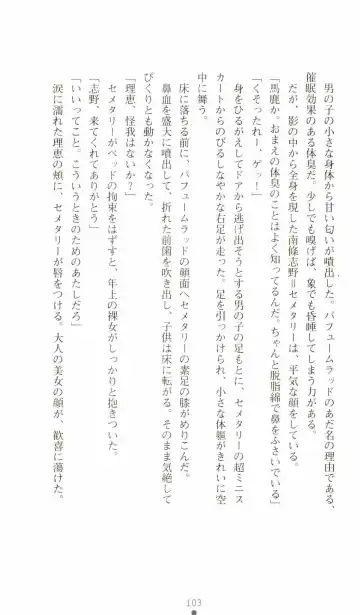 男の子の小さな身体から甘い匂いが噴出した。パフュームラッドのあだ名の理由である、
催眠効果のある体臭だ。少しでも嗅げば、象でも昏睡してしまう力がある。
だが、影の中から全身を現した南條志野＝セメタリーは、平気な顔をしている。
「馬鹿か。おまえの体臭のことはよく知ってるんだ。ちゃんと脱脂綿で鼻をふさいでいる」
「くそったれー、ゲッ！」
身をひるがえしてドアから逃げ出そうとする男の子の足もとに、セメタリーの超ミニス
カートからのびるしなやかな右足が走った。足を引っかけられ、小さな体軀がきれいに空
中に舞う。
床に落ちる前に、パフュームラッドの顔面へセメタリーの素足の膝がめりこんだ。
鼻血を盛大に噴出して、折れた前歯を吹き出し、子供は床に転がる。そのまま気絶して
ぴくりとも動かなくなった。
「理恵、怪我はないか？」
セメタリーがベッドの拘束をはずすと、年上の裸女がしっかりと抱きついた。
「志野、来てくれてありがとう」
「いいってこと。こういうときのためのあたしだろ」
涙に濡れた理恵の頬に、セメタリーが唇をつける。大人の美女の顔が、歓喜に蕩けた。
103